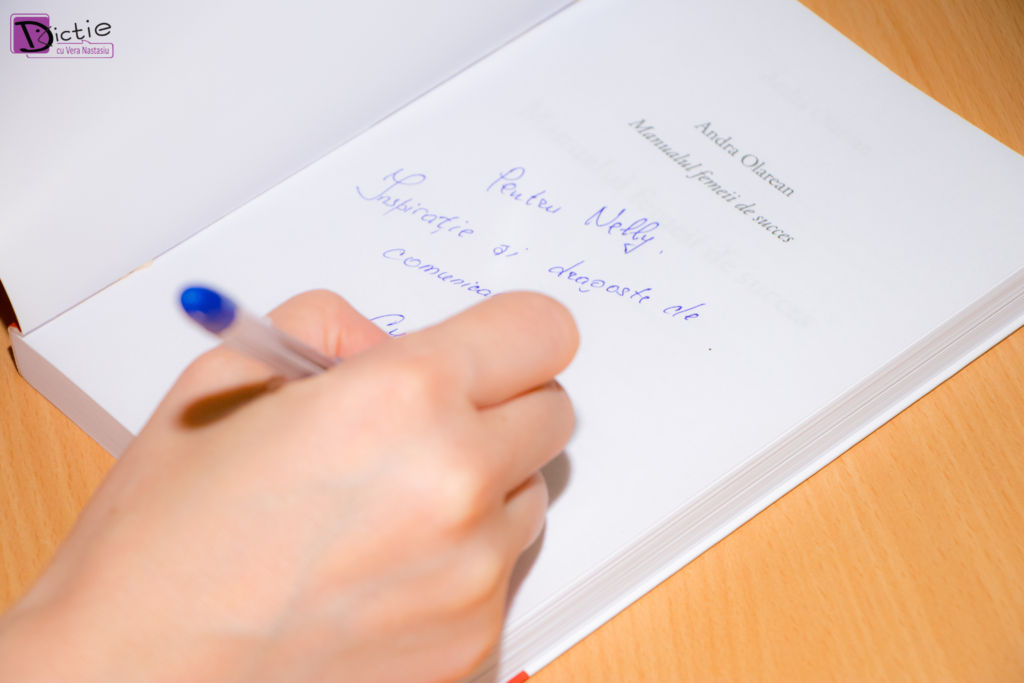 Dictie
cu Vera Nastasiu
Andra Olarean
Manualul femeii de succes
Pentru Nelly.
Inspirație și dragoste de